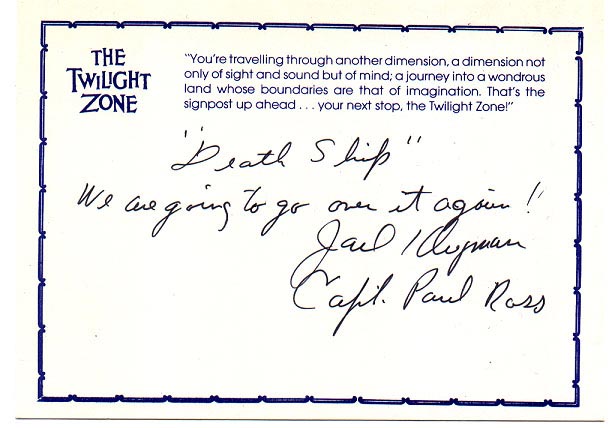 THE
TWILIGHT
ZONE
"You're travelling through another dimension, a dimension not
only of sight and sound but of mind; a journey into a wondrous
land whose boundaries are that of imagination. That's the
signpost up ahead . . . your next stop, the Twilight Zone!"
"Death Ship"
We are going to go over it again!
Jack Klugman
Capt. Paul Ross